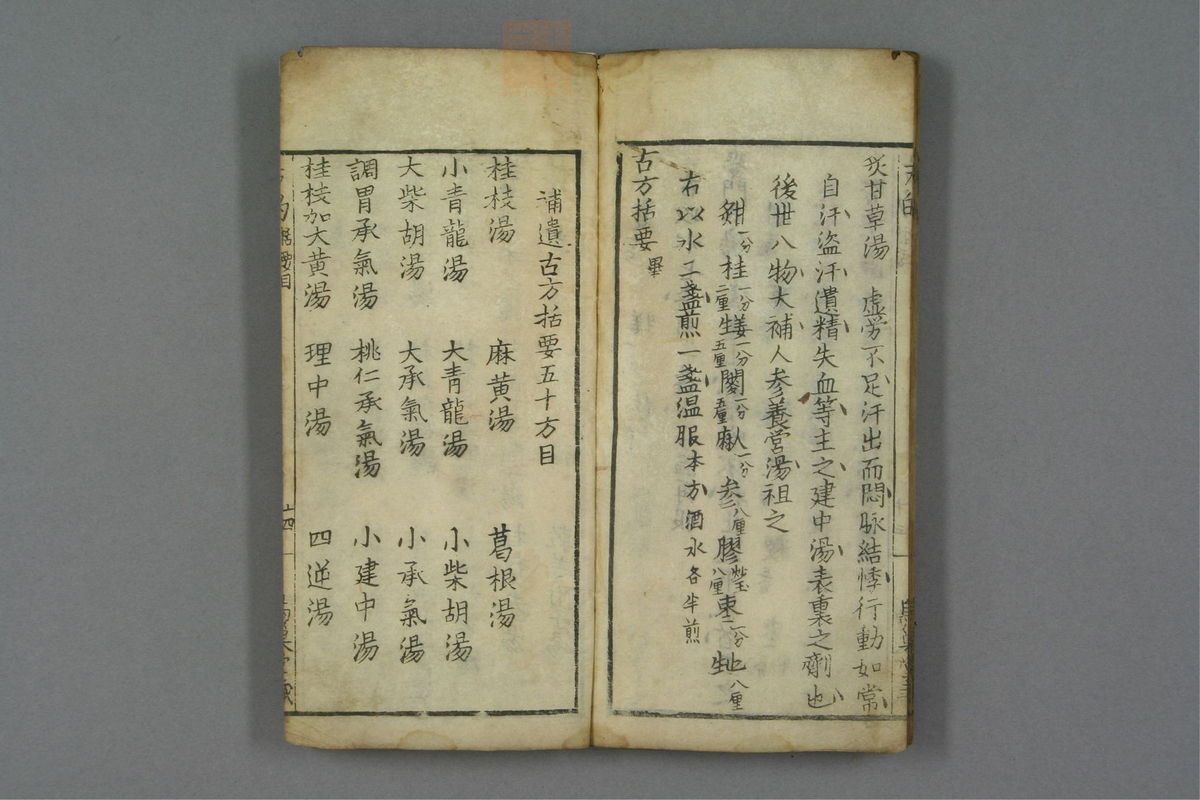 炙甘草湯　虚労不足汗出而悶脉結悸行動如常
自汗盗汗遺精失血等主之建中湯表裏之劑也
後世八物大補人参養営湯祖之
甘一分 桂一分二厘 生姜一分五厘 一分五厘 麻人一分 参八厘 膠炒八厘 棗二分 生地八厘
右以水二盞煎一盞温服本方酒水各半煎
古方括要畢
補遺古方括要五十方目
桂枝湯　麻黄湯　葛根湯
小青龍湯　大青龍湯　小柴胡湯
大柴胡湯　大承氣湯　小承氣湯
調胃承氣湯　桃仁承氣湯　小建中湯
桂枝加大黄湯　理中湯　四逆湯